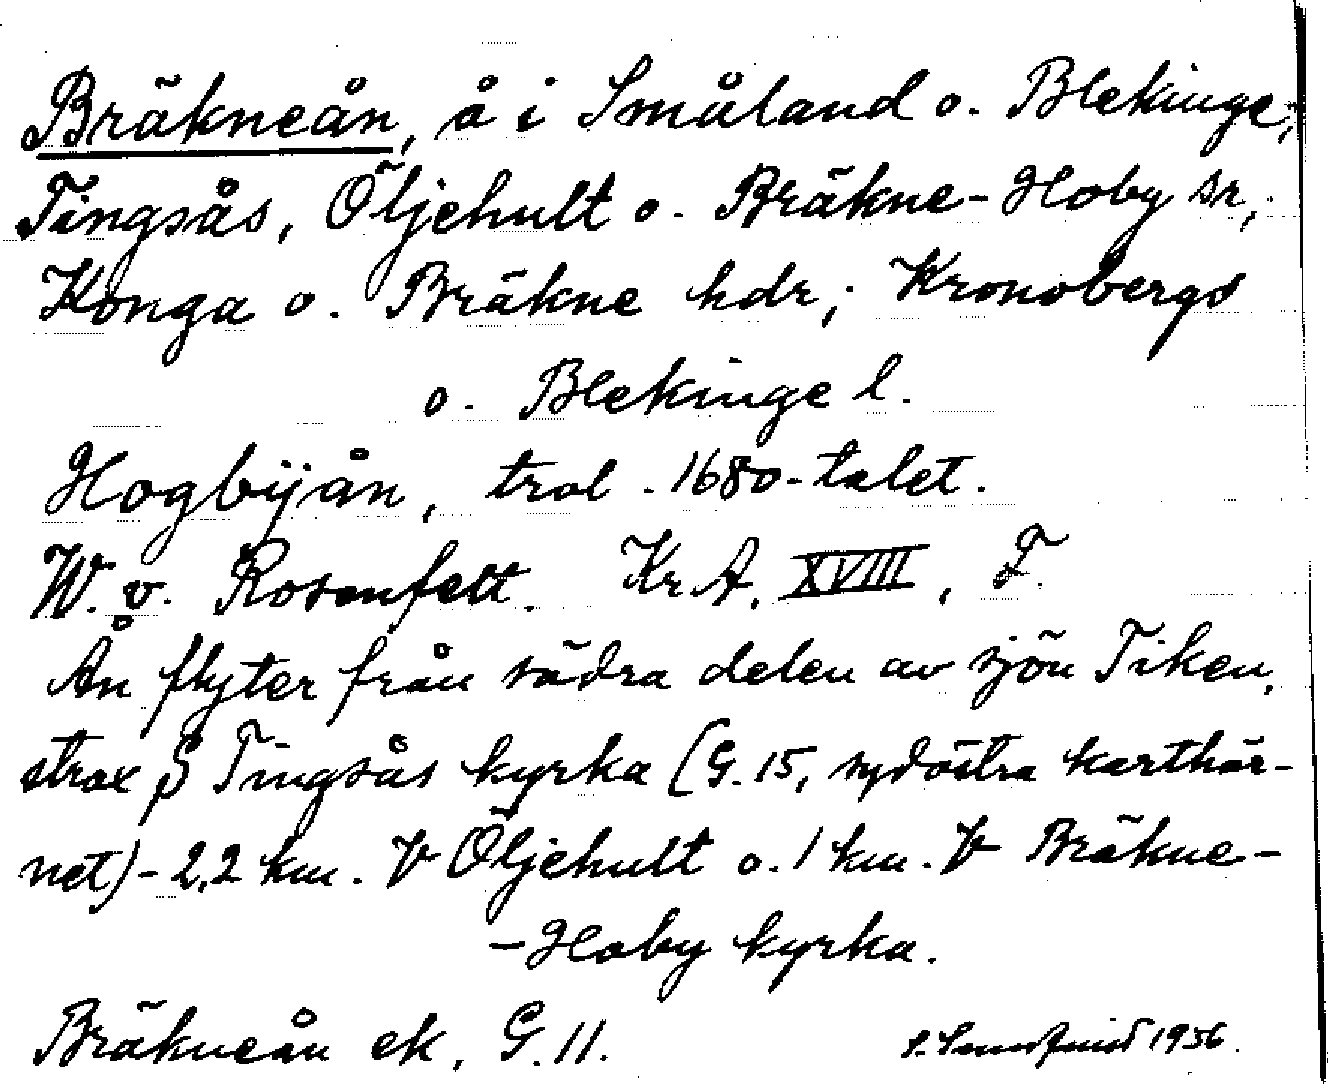 Bräkneån, å i Småland o. Blekinge;
Tingsås, Öljehult o. Bräkne-Hoby sr,
Konga o. Bräkne hdr; Kronobergs
o. Blekinge l.
Hogbÿån, trol. 1680-talet.
W. v. Rosenfelt. Kr A. XVIII, F.
Ån flyter från södra delen av sjön Tiken,
strax S Tingsås kyrka (G. 15, sydöstra karthör-
net) - 2,2 km. V Öljehult o. 1 km. V Bräkne-
-Hoby kyrka.
Bräkneån ek, G. 11.
1956.